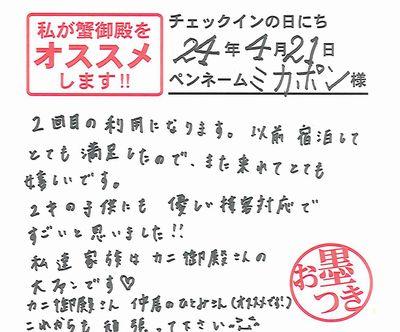 私が蟹御殿を
オススメ
します!!
チェックインの日にち
24年4月21日
ペンネームミカポン様
2回目の利用になります。以前宿泊して
とても満足したので、また来れてとても
嬉しいです。
2才の子供にも優しい接客対応で
すごいと思いました!!
私達家族はカニ御殿さんの
大ファンです♡
カニ御殿さん 仲居のひとみさん(オススメです!)
これからも頑張って下さい
お墨つき